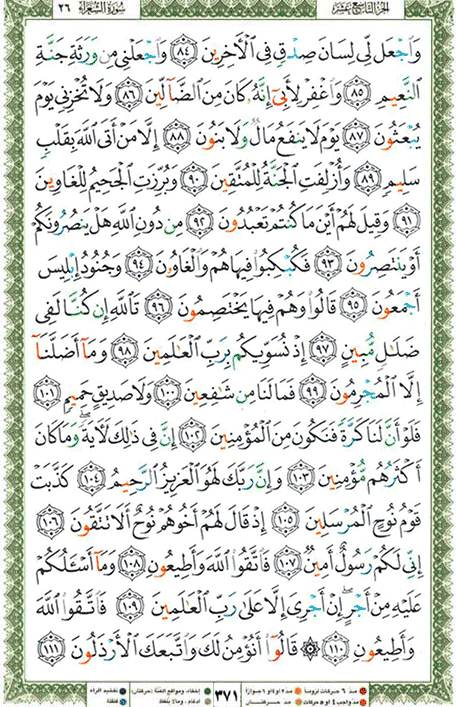 الجزء التاسع عشر سورة الشعراء ٢٦
وَٱجْعَل لِّى لِسَانَ صِدْقٍ فِى ٱلْأَخِرِينَ ٨٤ وَٱجْعَلْنِى مِن وَرَثَةِ جَنَّةِ
ٱلنَّعِيمِ ٨٥ وَٱغْفِرْ لِأَبِىٓ إِنَّهُۥ كَانَ مِنَ ٱلضَّآلِّينَ ٨٦ وَلَا تُخْزِنِى يَوْمَ
يُبْعَثُونَ ٨٧ يَوْمَ لَا يَنفَعُ مَالٌ وَلَا بَنُونَ ٨٨ إِلَّا مَنْ أَتَى ٱللَّهَ بِقَلْبٍ
سَلِيمٍ ٨٩ وَأُزْلِفَتِ ٱلْجَنَّةُ لِلْمُتَّقِينَ ٩٠ وَبُرِّزَتِ ٱلْجَحِيمُ لِلْغَاوِينَ
٩١ وَقِيلَ لَهُمْ أَيْنَ مَا كُنتُمْ تَعْبُدُونَ ٩٢ مِن دُونِ ٱللَّهِ هَلْ يَنصُرُونَكُمْ
أَوْ يَنتَصِرُونَ ٩٣ فَكُبْكِبُوا۟ فِيهَا هُمْ وَٱلْغَاوُۥنَ ٩٤ وَجُنُودُ إِبْلِيسَ
أَجْمَعُونَ ٩٥ قَالُوا۟ وَهُمْ فِيهَا يَخْتَصِمُونَ ٩٦ تَٱللَّهِ إِن كُنَّا لَفِى
ضَلَٰلٍ مُّبِينٍ ٩٧ إِذْ نُسَوِّيكُم بِرَبِّ ٱلْعَٰلَمِينَ ٩٨ وَمَآ أَضَلَّنَآ
إِلَّا ٱلْمُجْرِمُونَ ٩٩ فَمَا لَنَا مِن شَٰفِعِينَ ١٠٠ وَلَا صَدِيقٍ حَمِيمٍ ١٠١
فَلَوْ أَنَّ لَنَا كَرَّةً فَنَكُونَ مِنَ ٱلْمُؤْمِنِينَ ١٠٢ إِنَّ فِى ذَٰلِكَ لَأَيَةً ۖ وَمَا كَانَ
أَكْثَرُهُم مُّؤْمِنِينَ ١٠٣ وَإِنَّ رَبَّكَ لَهُوَ ٱلْعَزِيزُ ٱلرَّحِيمُ ١٠٤ كَذَّبَتْ
قَوْمُ نُوحٍ ٱلْمُرْسَلِينَ ١٠٥ إِذْ قَالَ لَهُمْ أَخُوهُمْ نُوحٌ أَلَا تَتَّقُونَ ١٠٦
إِنِّى لَكُمْ رَسُولٌ أَمِينٌ ١٠٧ فَٱتَّقُوا۟ ٱللَّهَ وَأَطِيعُونِ ١٠٨ وَمَآ أَسْـَٔلُكُمْ
عَلَيْهِ مِنْ أَجْرٍ ۖ إِنْ أَجْرِىَ إِلَّا عَلَىٰ رَبِّ ٱلْعَٰلَمِينَ ١٠٩ فَٱتَّقُوا۟ ٱللَّهَ
وَأَطِيعُونِ ١١٠ ۞ قَالُوٓا۟ أَنُؤْمِنُ لَكَ وَٱتَّبَعَكَ ٱلْأَرْذَلُونَ ١١١
مد ٦ حركات لزوماً مد ٢ او ٤ او ٦ جوازاً ٣٧١ إخفاء، ومواقع الغنة (حركتان) تفخيم الراء
مد واجب ٤ او ٥ حركات مد حركتان إدغام، وما لا يلفظ قلقلة